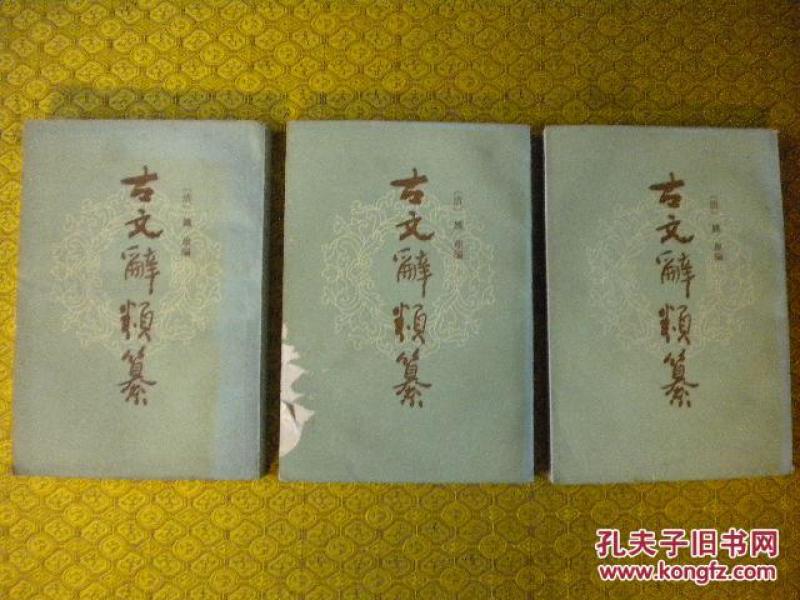 古文辭類纂
〔清〕姚鼐編
古文辭類纂
〔清〕姚鼐編
古文辭類纂
〔清〕姚鼐編
孔夫子旧书网
www.kongfz.com